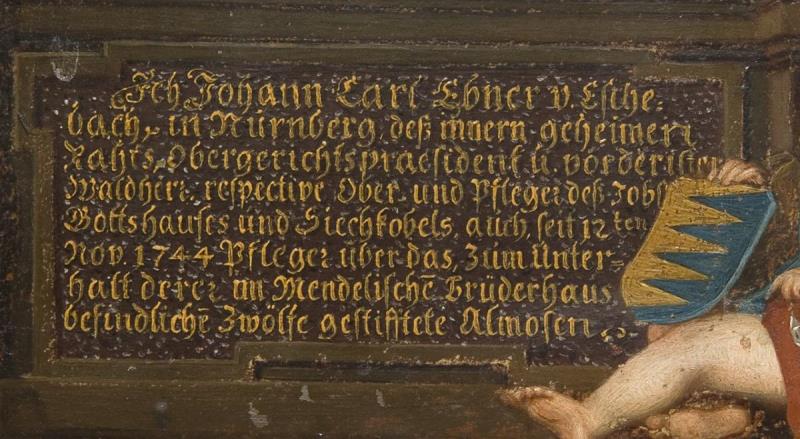 Ich Johann Carl Ebner v. Esche-
bach, in Nürnberg, deß innern geheimen
Rahts, Obergerichtspraesident u. vorderister
Waldherr, respective Ober- und Pfleger deß Jobst
Gottshauses und Siechkobels, auch seit 12ten
Nov. 1744 Pfleger über das, zum Unter-
halt derer im Mendelischē Brüderhaus,
befindlichē Zwölfe gestifftete Almosen.